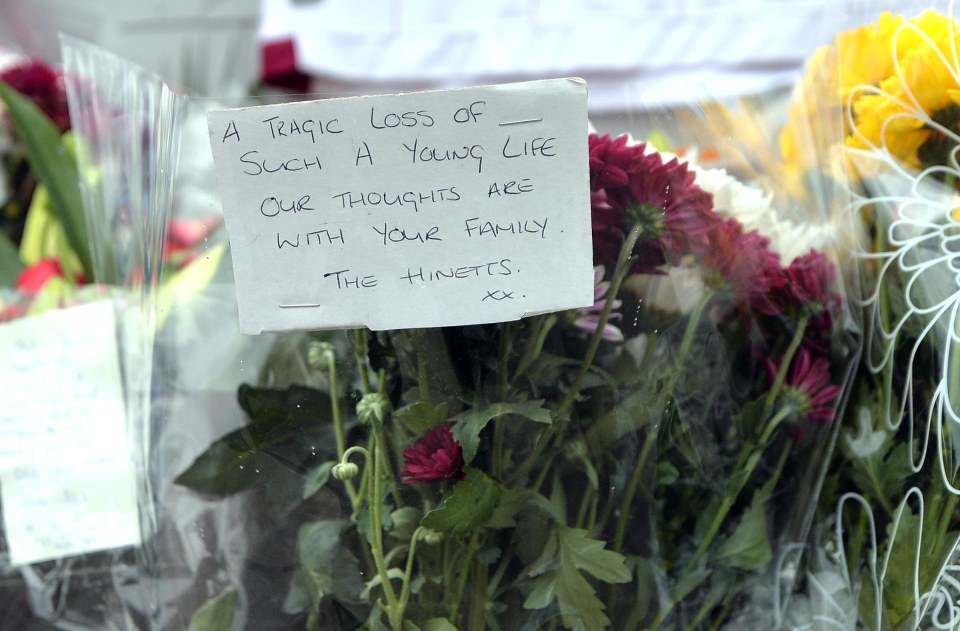 A TRAGIC LOSS OF
SUCH A YOUNG LIFE
OUR THOUGHTS ARE
WITH YOUR FAMILY.
THE HINETTS.
xx.